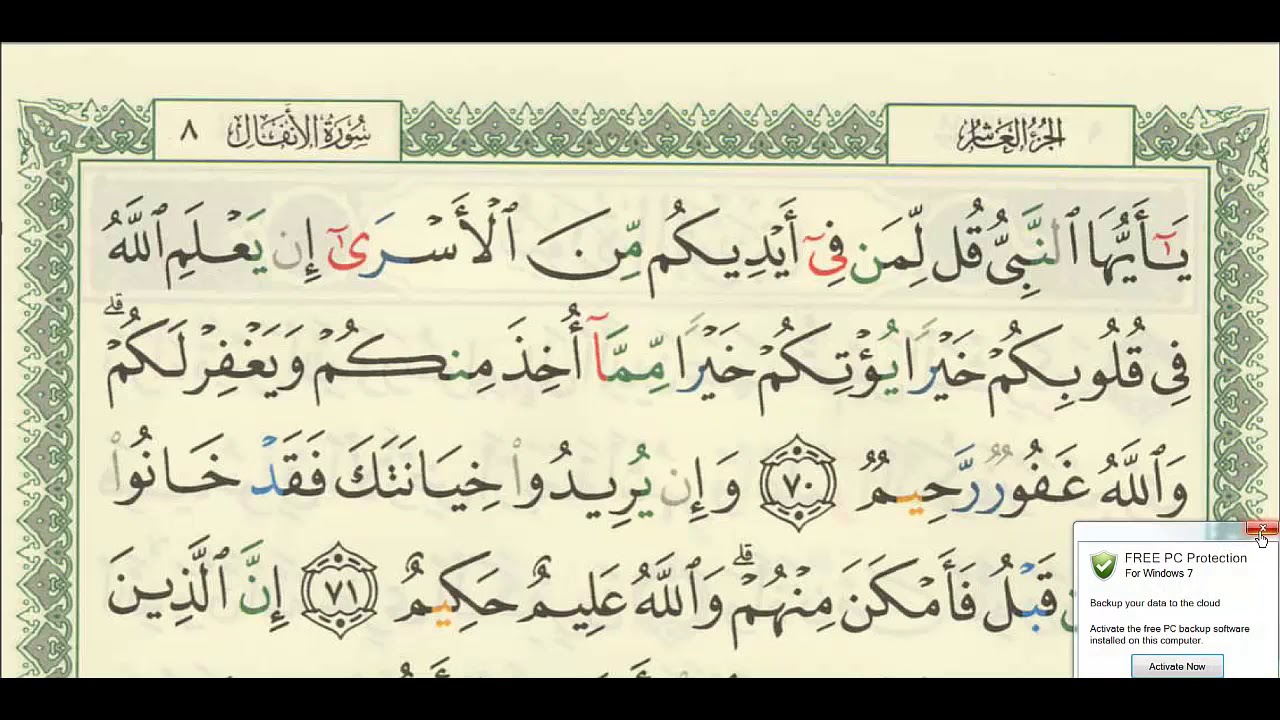 الجزء العاشر
سورة الأنفال ٨
يَٰٓأَيُّهَا ٱلنَّبِىُّ قُل لِّمَن فِىٓ أَيْدِيكُم مِّنَ ٱلْأَسْرَىٰٓ إِن يَعْلَمِ ٱللَّهُ
فِى قُلُوبِكُمْ خَيْرًا يُؤْتِكُمْ خَيْرًا مِّمَّآ أُخِذَ مِنكُمْ وَيَغْفِرْ لَكُمْ ۗ
وَٱللَّهُ غَفُورٌ رَّحِيمٌ ٧٠ وَإِن يُرِيدُوا۟ خِيَانَتَكَ فَقَدْ خَانُوا۟
قَبْلُ فَأَمْكَنَ مِنْهُمْ ۗ وَٱللَّهُ عَلِيمٌ حَكِيمٌ ٧١ إِنَّ ٱلَّذِينَ
FREE PC Protection
For Windows 7
Backup your data to the cloud
Activate the free PC backup software
installed on this computer.
Activate Now